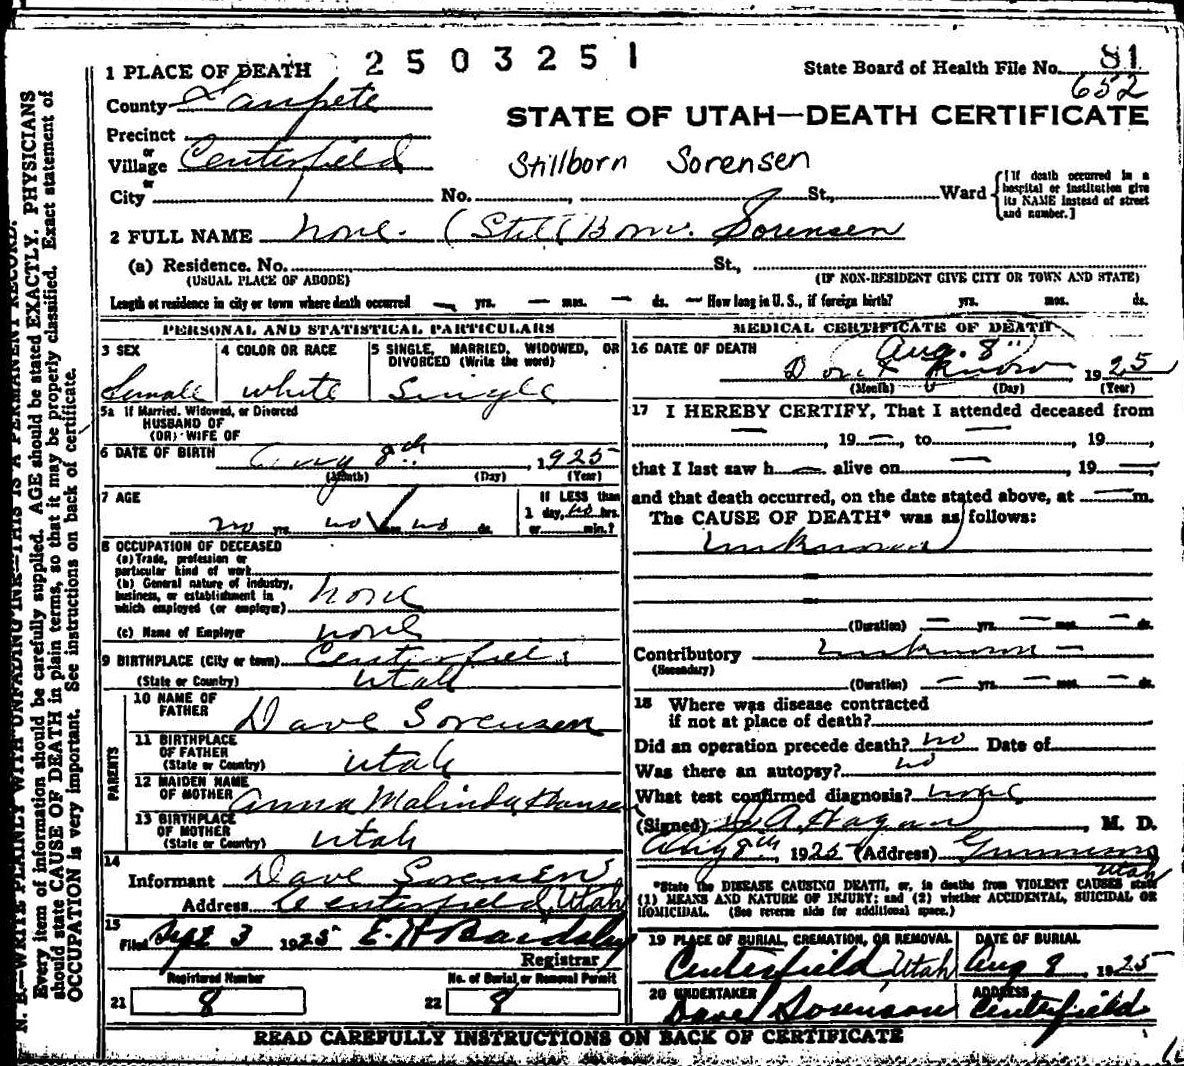 2503251
1 PLACE OF DEATH
State Board of Health File No. 81
652
County Sanpete
STATE OF UTAH—DEATH CERTIFICATE
Precinct
or
Village Centerfield
Stillborn Sorensen
or
City No. St., Ward
[If death occurred in a hospital or institution give its NAME instead of street and number.]
2 FULL NAME none. (Still Born. Sorensen
(a) Residence. No. St.,
(USUAL PLACE OF ABODE) (IF NON-RESIDENT GIVE CITY OR TOWN AND STATE)
Length of residence in city or town where death occurred — yrs. — mos. — ds. — How long in U. S., if foreign birth? yrs. mos. ds.
PERSONAL AND STATISTICAL PARTICULARS
3 SEX
Female
4 COLOR OR RACE
white
5 SINGLE, MARRIED, WIDOWED, OR DIVORCED (Write the word)
Single
5a If Married, Widowed, or Divorced
HUSBAND OF
(OR) WIFE OF
6 DATE OF BIRTH Aug 8th, 1925
(Month) (Day) (Year)
7 AGE
no yrs. no mos. no ds.
If LESS than
1 day, no hrs.
or min.?
8 OCCUPATION OF DECEASED
(a) Trade, profession or
particular kind of work
(b) General nature of industry,
business, or establishment in
which employed (or employer) none
(c) Name of Employer none
9 BIRTHPLACE (City or town) Centerfield
(State or Country) Utah
PARENTS
10 NAME OF
FATHER Dave Sorensen
11 BIRTHPLACE
OF FATHER
(State or Country) Utah
12 MAIDEN NAME
OF MOTHER Anna Malinda Hansen
13 BIRTHPLACE
OF MOTHER
(State or Country) Utah
14
Informant Dave Sorensen
Address Centerfield, Utah
15
Filed Sept 3 1925 E. H. Bardsley
Registrar
Registered Number
21 8
No. of Burial or Removal Permit
22 8
MEDICAL CERTIFICATE OF DEATH
16 DATE OF DEATH
Aug. 8"
Dont Know 1925
(Month) (Day) (Year)
17 I HEREBY CERTIFY, That I attended deceased from
—, 19—, to —, 19
that I last saw h— alive on —, 19—,
and that death occurred, on the date stated above, at — m.
The CAUSE OF DEATH* was as follows:
Unknown
(Duration) — yrs. — mos. — ds.
Contributory Unknown —
(Secondary)
(Duration) — yrs. — mos. — ds.
18 Where was disease contracted
if not at place of death?
Did an operation precede death? no Date of
Was there an autopsy? no
What test confirmed diagnosis? none
(Signed) A. Hagan, M. D.
Aug 8th, 1925 (Address) Gunnison
Utah
*State the DISEASE CAUSING DEATH, or, in deaths from VIOLENT CAUSES state
(1) MEANS AND NATURE OF INJURY; and (2) whether ACCIDENTAL, SUICIDAL OR
HOMICIDAL. (See reverse side for additional space.)
19 PLACE OF BURIAL, CREMATION, OR REMOVAL
Centerfield Utah
DATE OF BURIAL
Aug 8 1925
20 UNDERTAKER
Dave Sorenson
ADDRESS
Centerfield
READ CAREFULLY INSTRUCTIONS ON BACK OF CERTIFICATE
N. B.—WRITE PLAINLY WITH UNFADING INK—THIS IS A PERMANENT RECORD.
Every item of information should be carefully supplied. AGE should be stated EXACTLY. PHYSICIANS
should state CAUSE OF DEATH in plain terms, so that it may be properly classified. Exact statement of
OCCUPATION is very important. See instructions on back of certificate.